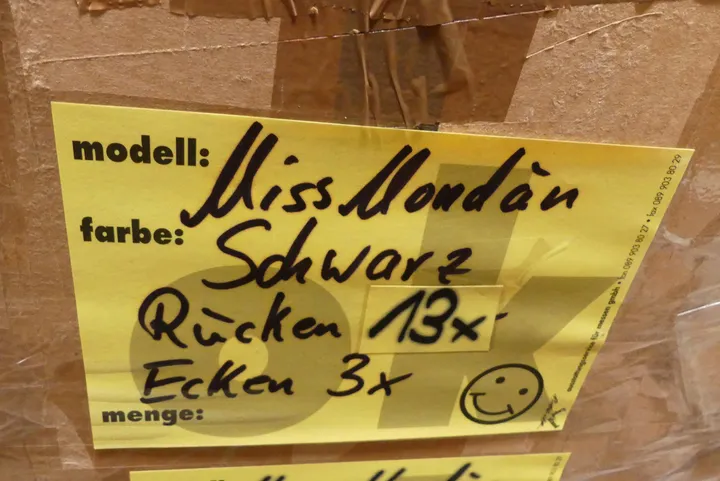 modell: Miss Mondän
farbe: Schwarz
Rücken 13x
Ecken 3x
menge:
ok
für messen gmbh • fon 089 903 80 27 • fax 089 903 80 29